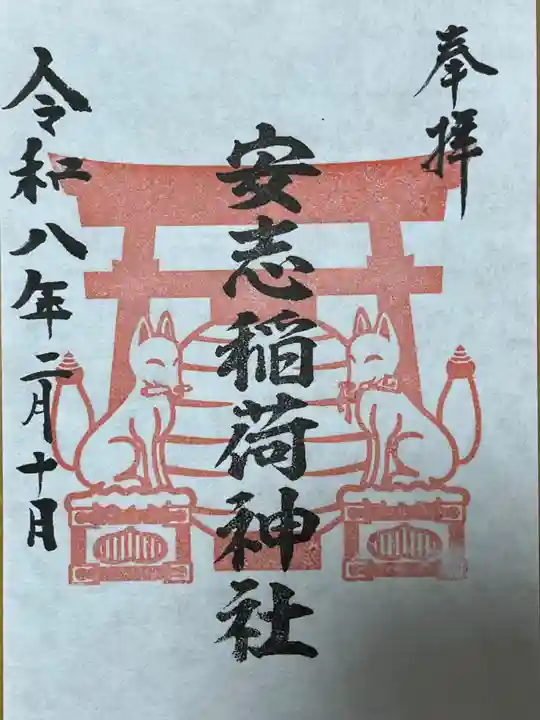 奉拝
安志稲荷神社
令和八年二月十日